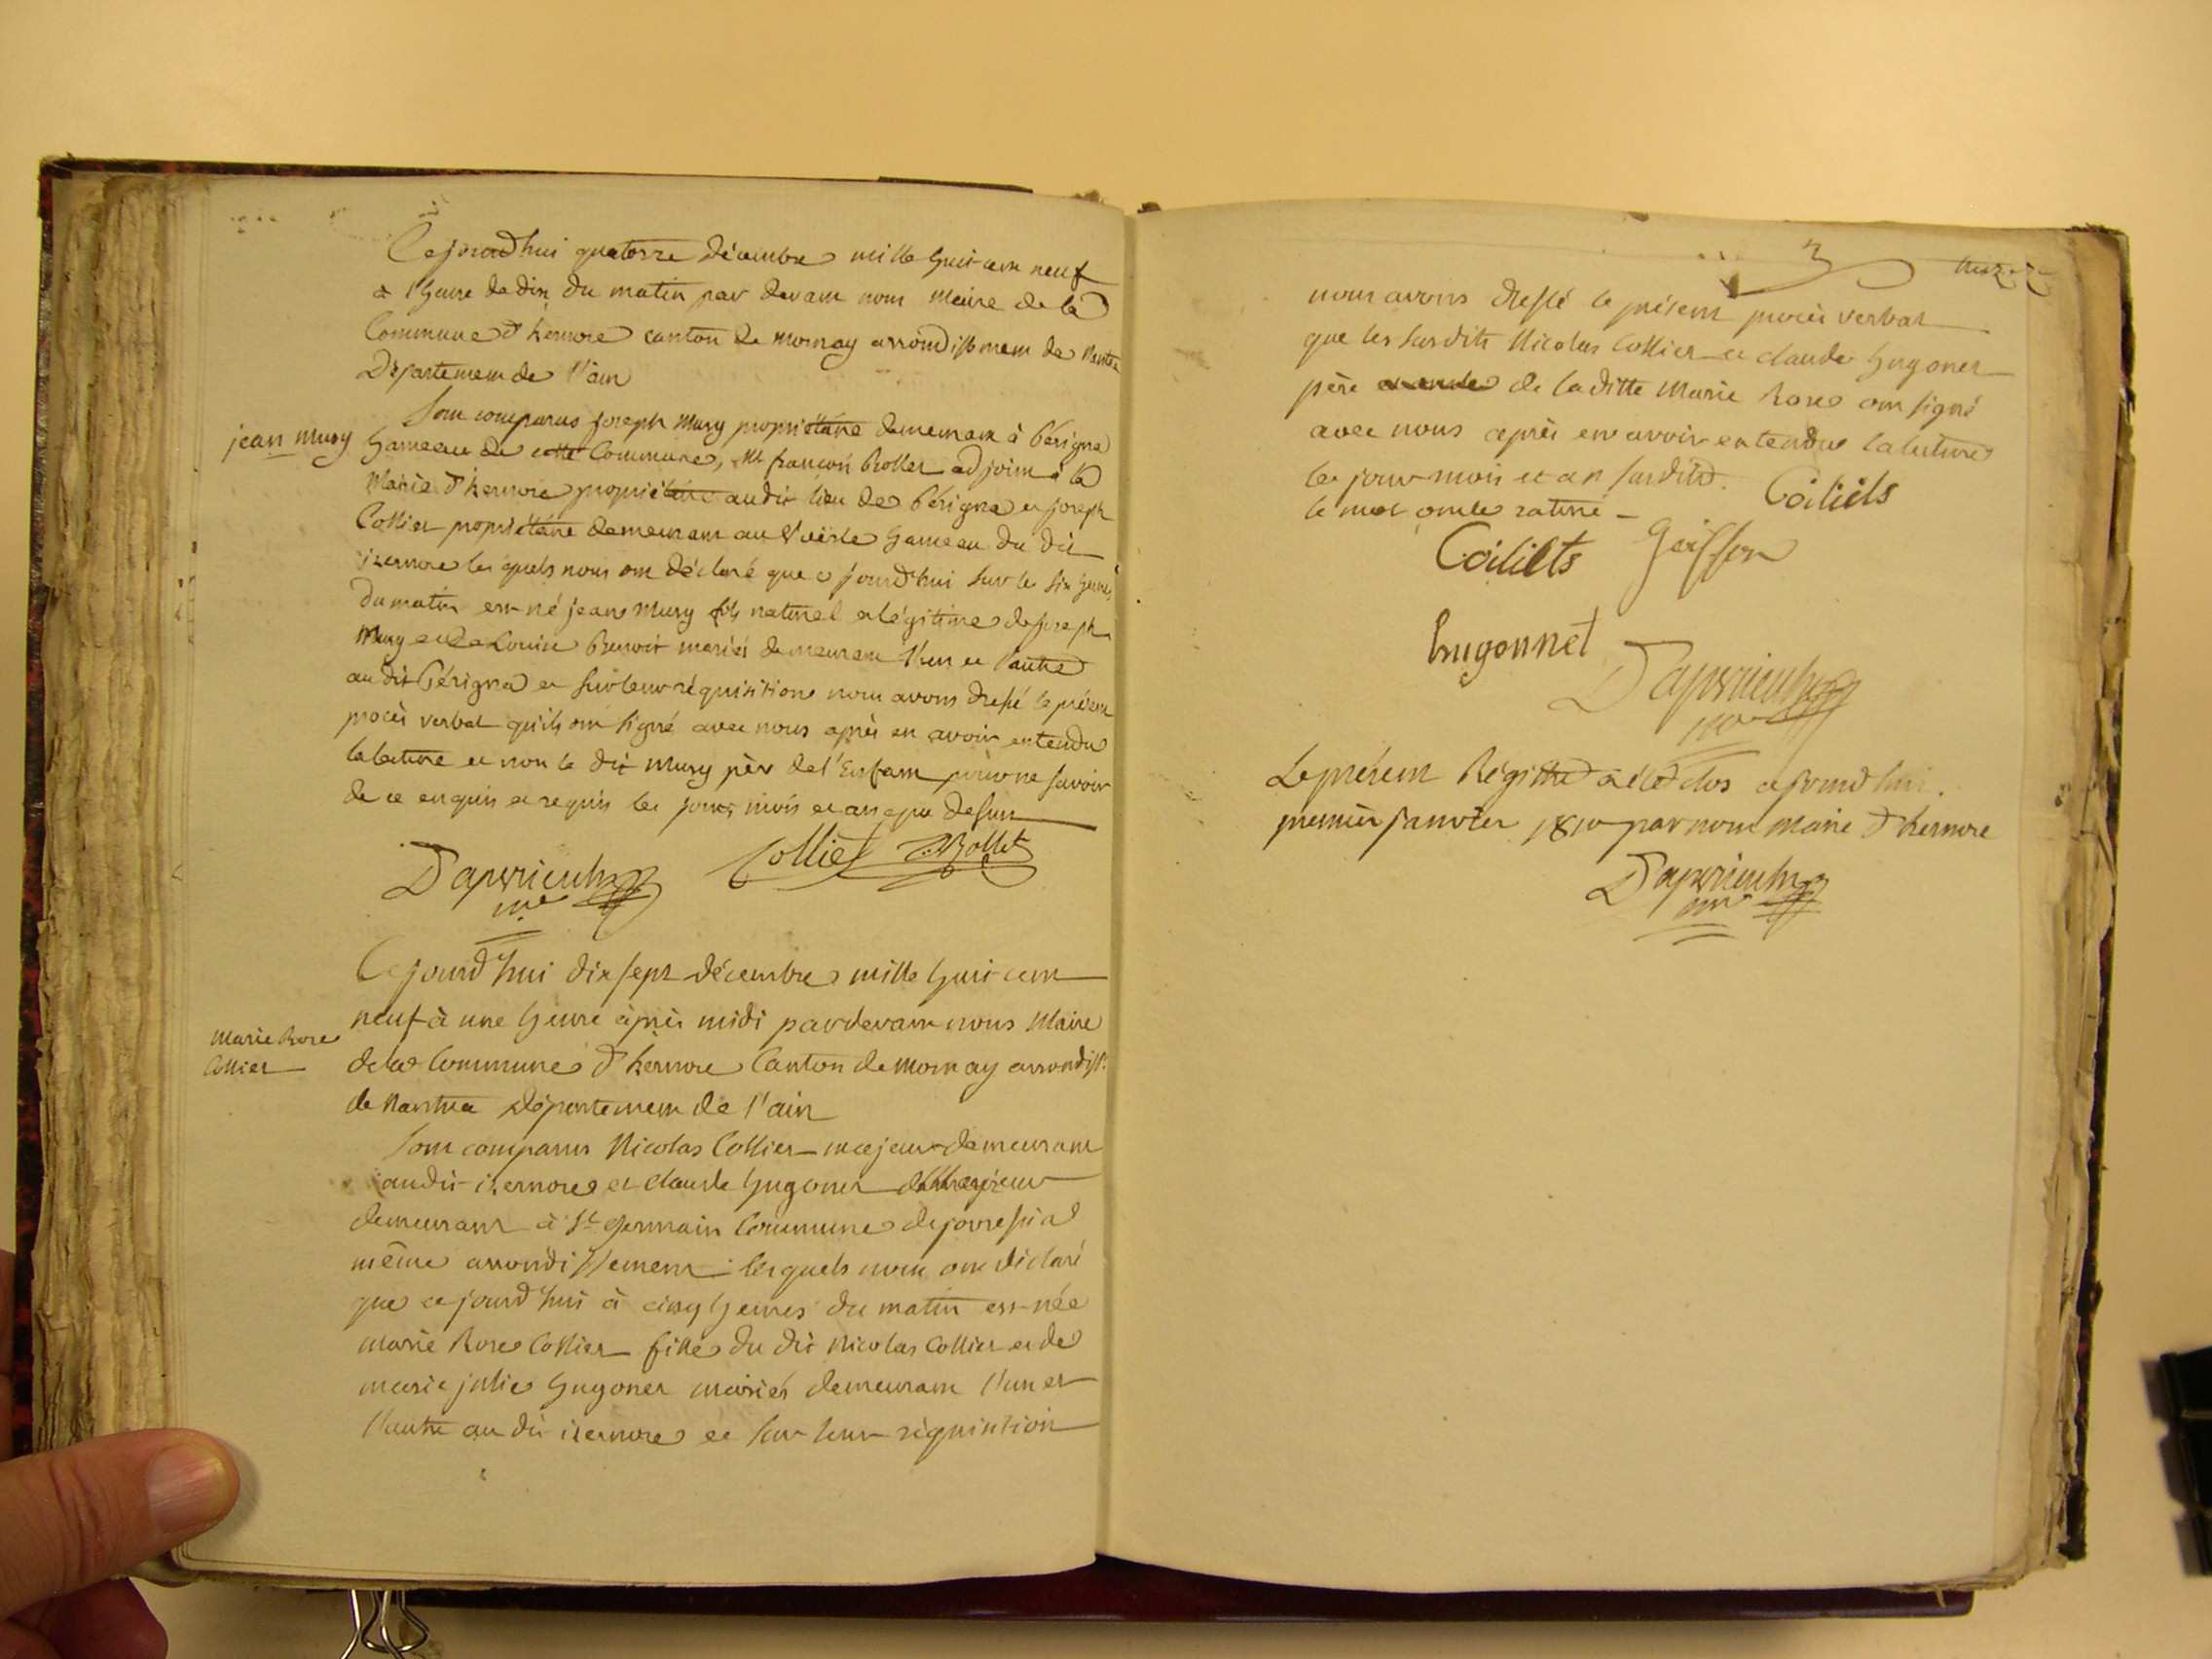 Cejourd'hui quatorze décembre mille huit cent neuf
à l'heure de dix du matin par devant nous Maire de la
Commune d'hernore canton de mornay arrondissement de Nantua
Département de l'ain
jean mury
Sont comparus joseph Mury propriétaire demeurant à Pérignia
hameau de cette Commune, Mr françois Rollet adjoint à la
Mairie d'izernore propriétaire au dit lieu de Pérignia et joseph
Collier propriétaire demeurant au hameau du dit
izernore les quels nous ont déclaré que ce jourd'hui sur les six heures
du matin est né jean Mury fils naturel et légitime de joseph
Mury et de Louise Benoit mariés demeurant l'un et l'autre
au dit Pérignia et sur leur réquisition nous avons dressé le présent
procès verbal qu'ils ont signé avec nous après en avoir entendu
la lecture et non le dit Mury père de l'Enfant pour ne savoir
de ce enquis et requis les jour, mois et an que dessus
Collier Rollet
Marie Rose
Collier
Cejourd'hui dix sept décembre mille huit cent
neuf à une heure après midi pardevant nous Maire
de la Commune d'izernore Canton de Mornay arrondisst
de Nantua Département de l'ain
Sont comparus Nicolas Collier majeur demeurant
au dit izernore et claude hugonet
demeurant à St germain Commune de
même arrondissement lesquels nous ont déclaré
que ce jourd'hui à cinq heures du matin est née
marie Rose Collier fille du dit Nicolas Collier et de
marie julie hugonet mariés demeurant l'un et
l'autre au dit izernore et sur leur réquisition
nous avons dressé le présent procès verbal
que les susdits Nicolas Collier et claude hugonet
père de la ditte Marie Rose ont signé
avec nous après en avoir entendu la lecture
les jour mois et an susdits.
le mot oncle ratturé
Coiliets
Coiliets
hugonnet
Le présent Régistre a été clos ce jourd'hui
premier janvier 1810 par nous maire d'izernore